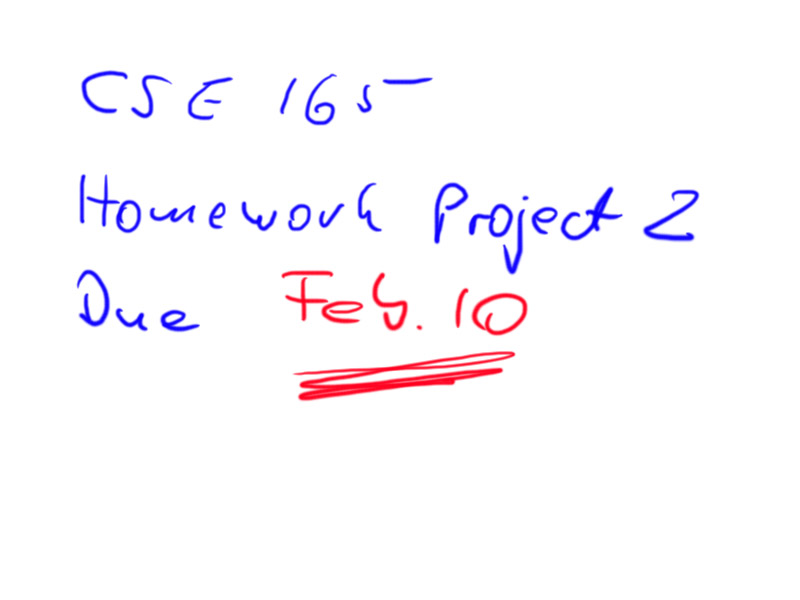 CSE 165
Homework Project 2
Due Feb. 10